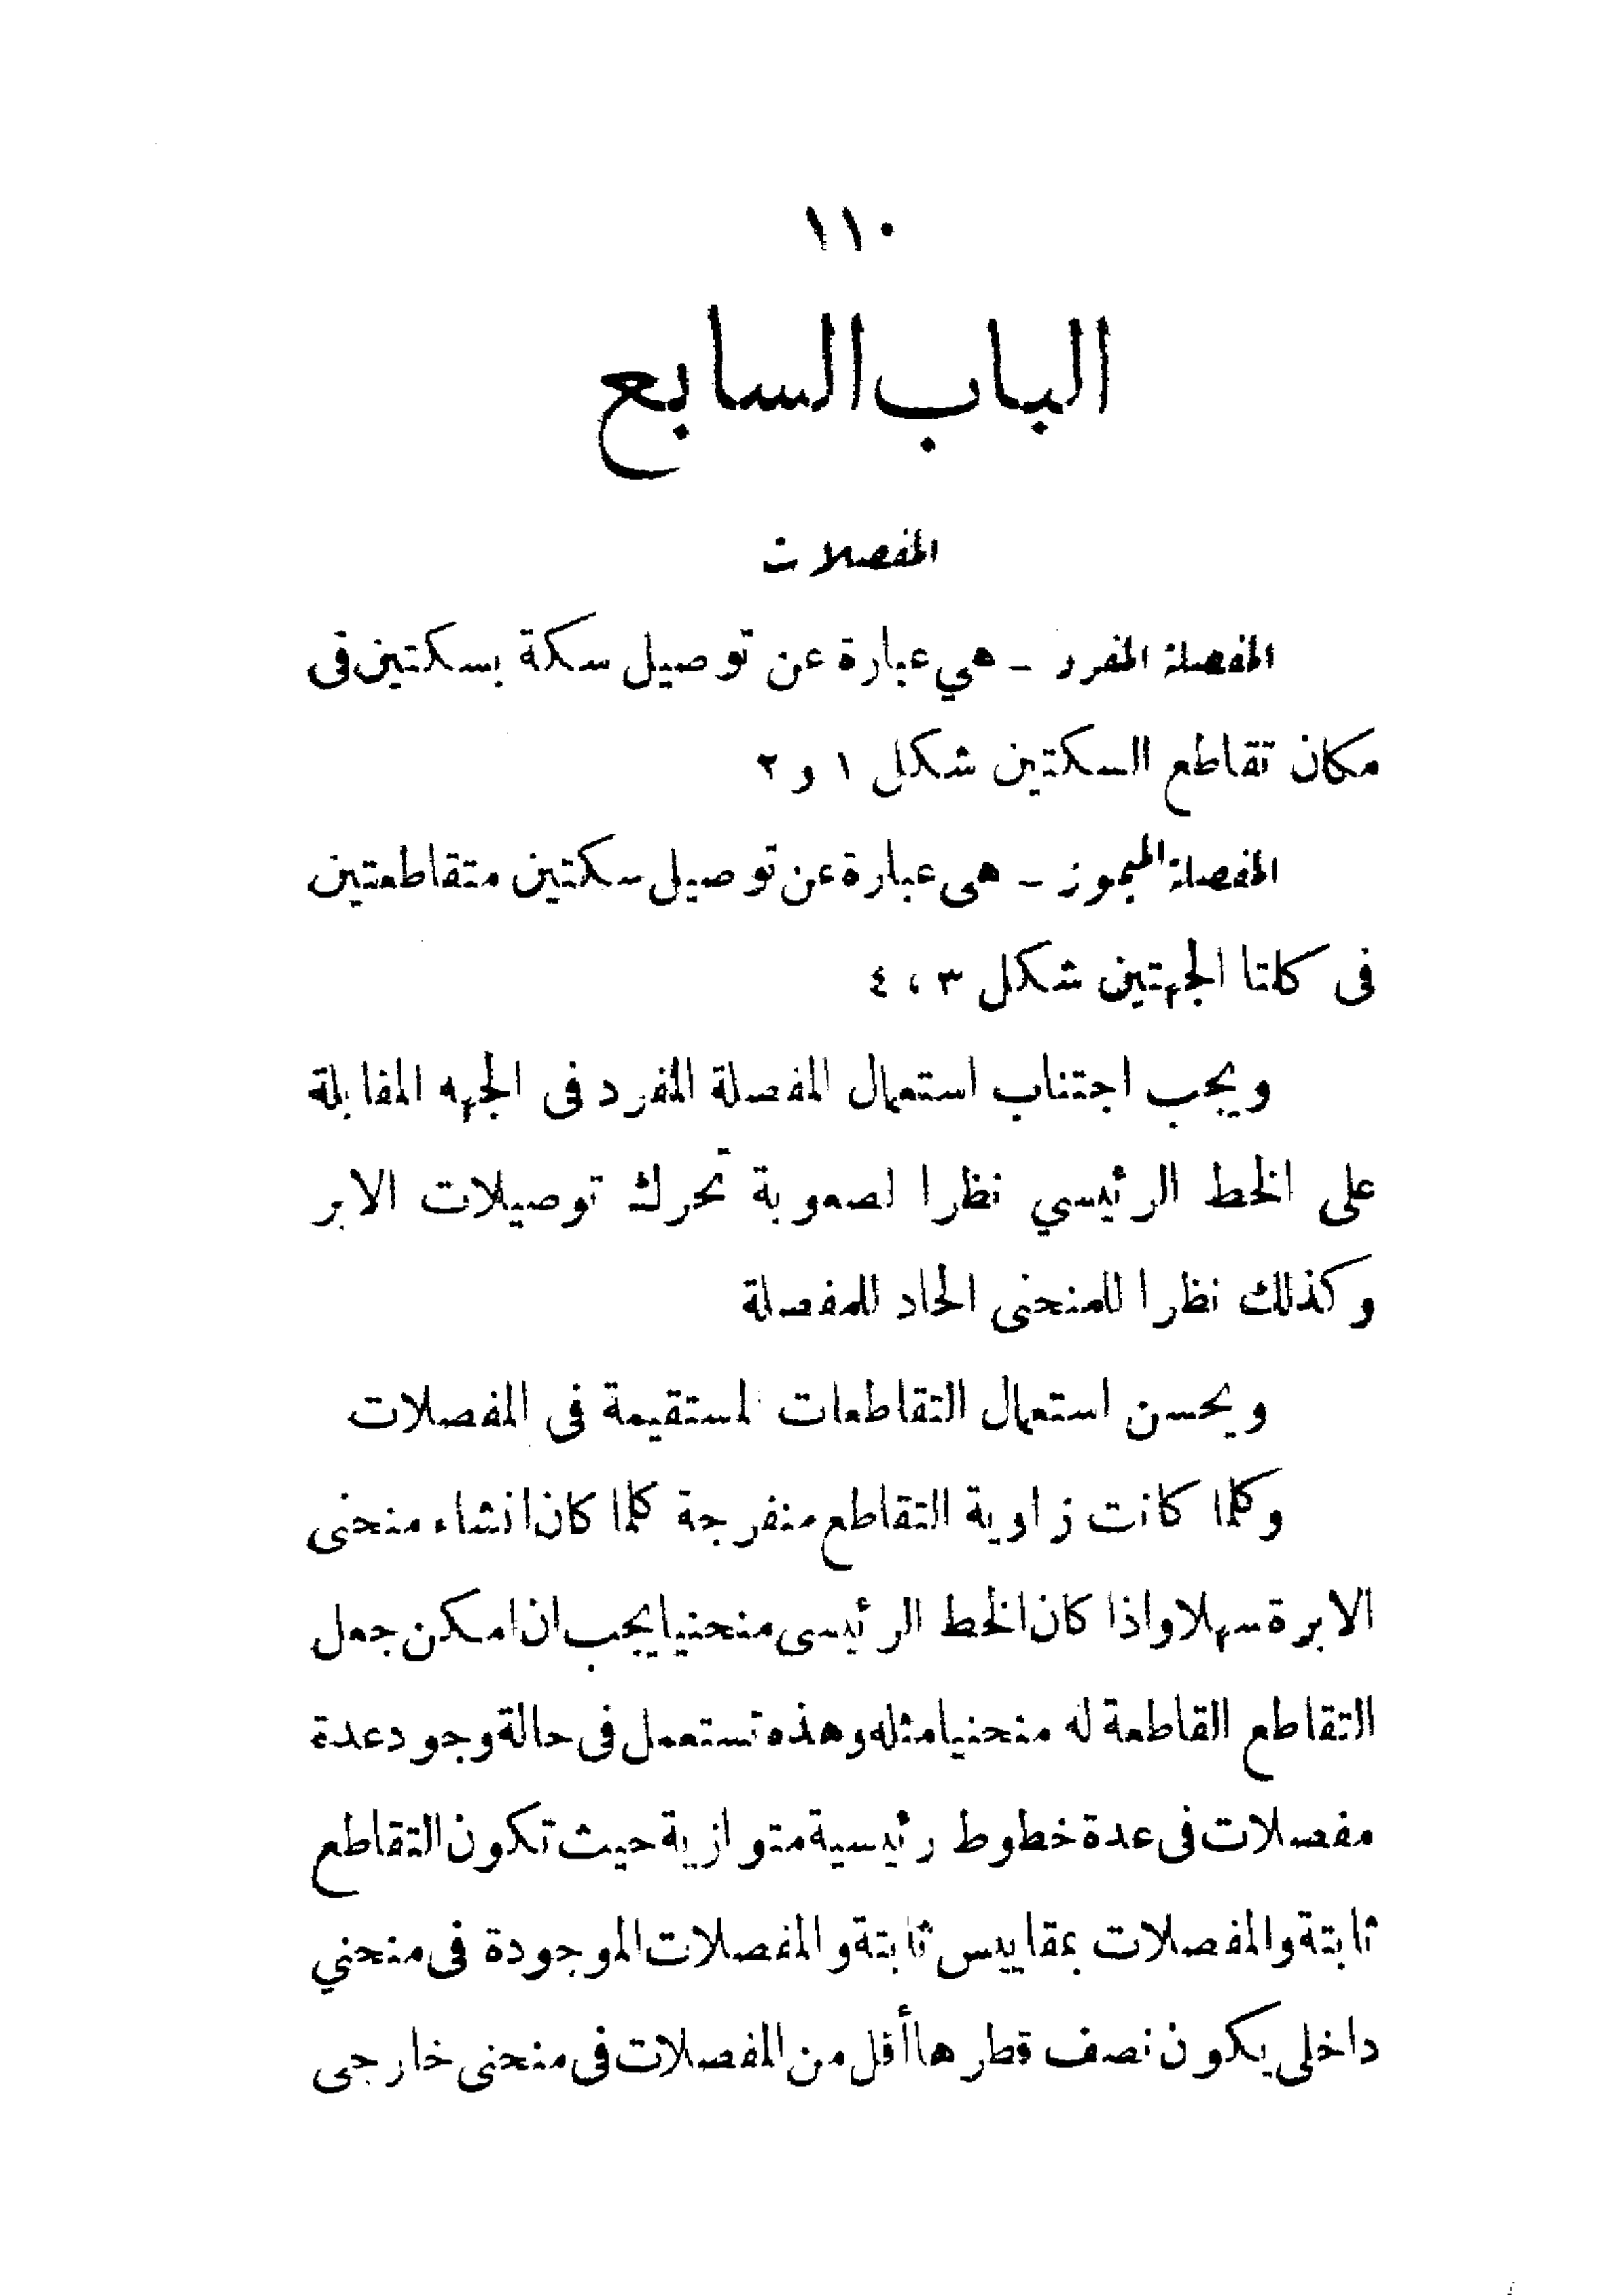 ١١٠
الباب السابع
المفصلات
المفصلة المفرد - هي عبارة عن توصيل سكة بسكتين فى
مكان تقاطع السكتين شكل ١ و ٢
المفصلة - هى عبارة عن توصيل سكتين متقاطعتين
فى كلتا الجهتين شكل ٣ ، ٤
ويجب اجتناب استعمال المفصلة المفرد فى الجهه المقابلة
على الخط الرئيسي نظرا لصعوبة تحرك توصيلات الابر
وكذلك نظرا للمنحنى الحاد للمفصلة
ويحسن استعمال التقاطعات المستقيمة فى المفصلات
وكلما كانت زاوية التقاطع منفرجة كلما كان انشاء منحنى
الابرة سهلا واذا كان الخط الرئيسى منحنيا يجب ان امكن جعل
التقاطع القاطعة له منحنيا مثله وهذه تستعمل فى حالة وجود عدة
مفصلات فى عدة خطوط رئيسية متوازية حيث تكون التقاطع
ثابتة والمفصلات بمقاييس ثابتة والمفصلات الموجودة فى منحني
داخلى يكون نصف قطرها أقل من المفصلات فى منحنى خارجى